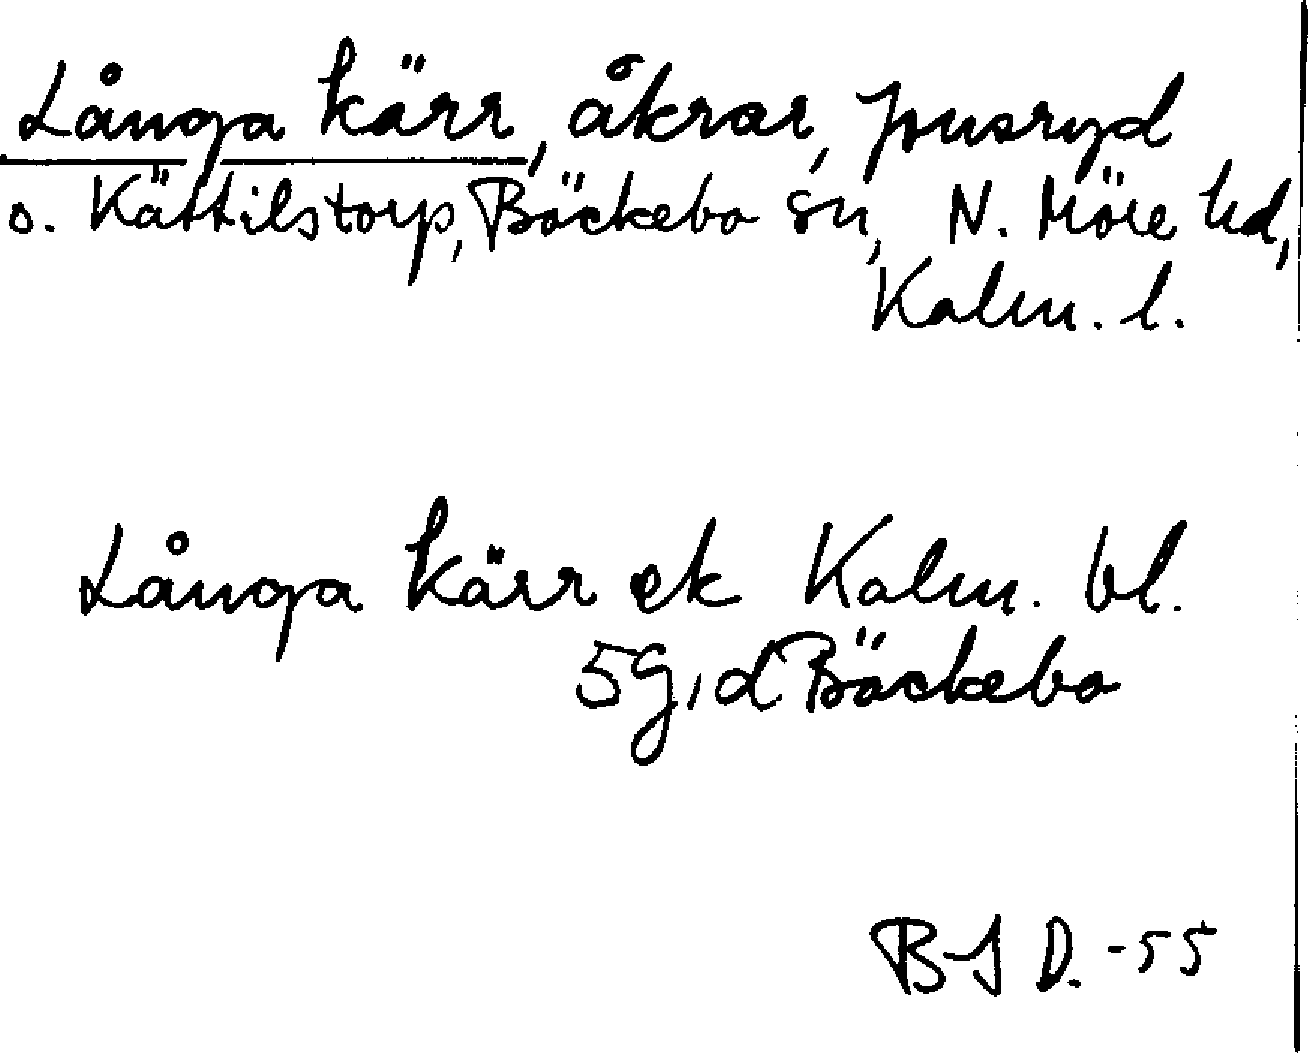 Långa kärr, åkrar, Pusryd
o. Kättilstorp, Bäckebo sn, N. Möre hd,
Kalm. l.
Långa kärr ek Kalm. bl.
5g,d Bäckebo
BJ D.-55